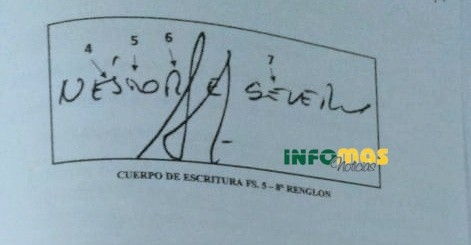 4 5 6 7
NÉSTOR
INFOMAS
Noticias
CUERPO DE ESCRITURA FS. 5 – 8º RENGLON